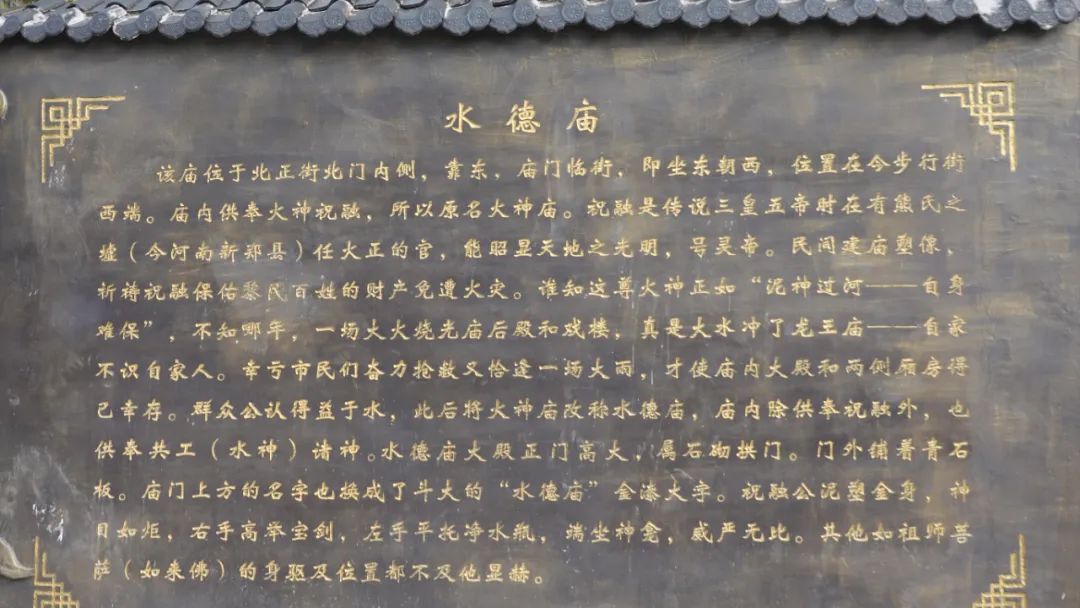 水德庙
该庙位于北正街北门内侧，靠东，庙门临街，即坐东朝西，位置在今步行街
西端。庙内供奉火神祝融，所以原名火神庙。祝融是传说三皇五帝时在有熊氏之
墟（今河南新郑县）任火正的官，能昭显天地之光明，号灵帝。民间建庙塑像、
祈祷祝融保佑黎民百姓的财产免遭火灾。谁知这尊火神正如“泥神过河——自身
难保”，不知哪年，一场大火烧光庙后殿和戏楼，真是大水冲了龙王庙——自家
不识自家人。幸亏市民们奋力抢救又恰逢一场大雨，才使庙内大殿和两侧厢房得
已幸存。群众公认得益于水，此后将火神庙改称水德庙，庙内除供奉祝融外，也
供奉共工（水神）诸神。水德庙大殿正门高大，属石砌拱门。门外铺着青石
板。庙门上方的名字也换成了斗大的“水德庙”金漆大字。祝融公泥塑金身，神
目如炬，右手高举宝剑，左手平托净水瓶，端坐神龛，威严无比。其他如祖师菩
萨（如来佛）的身躯及位置都不及他显赫。